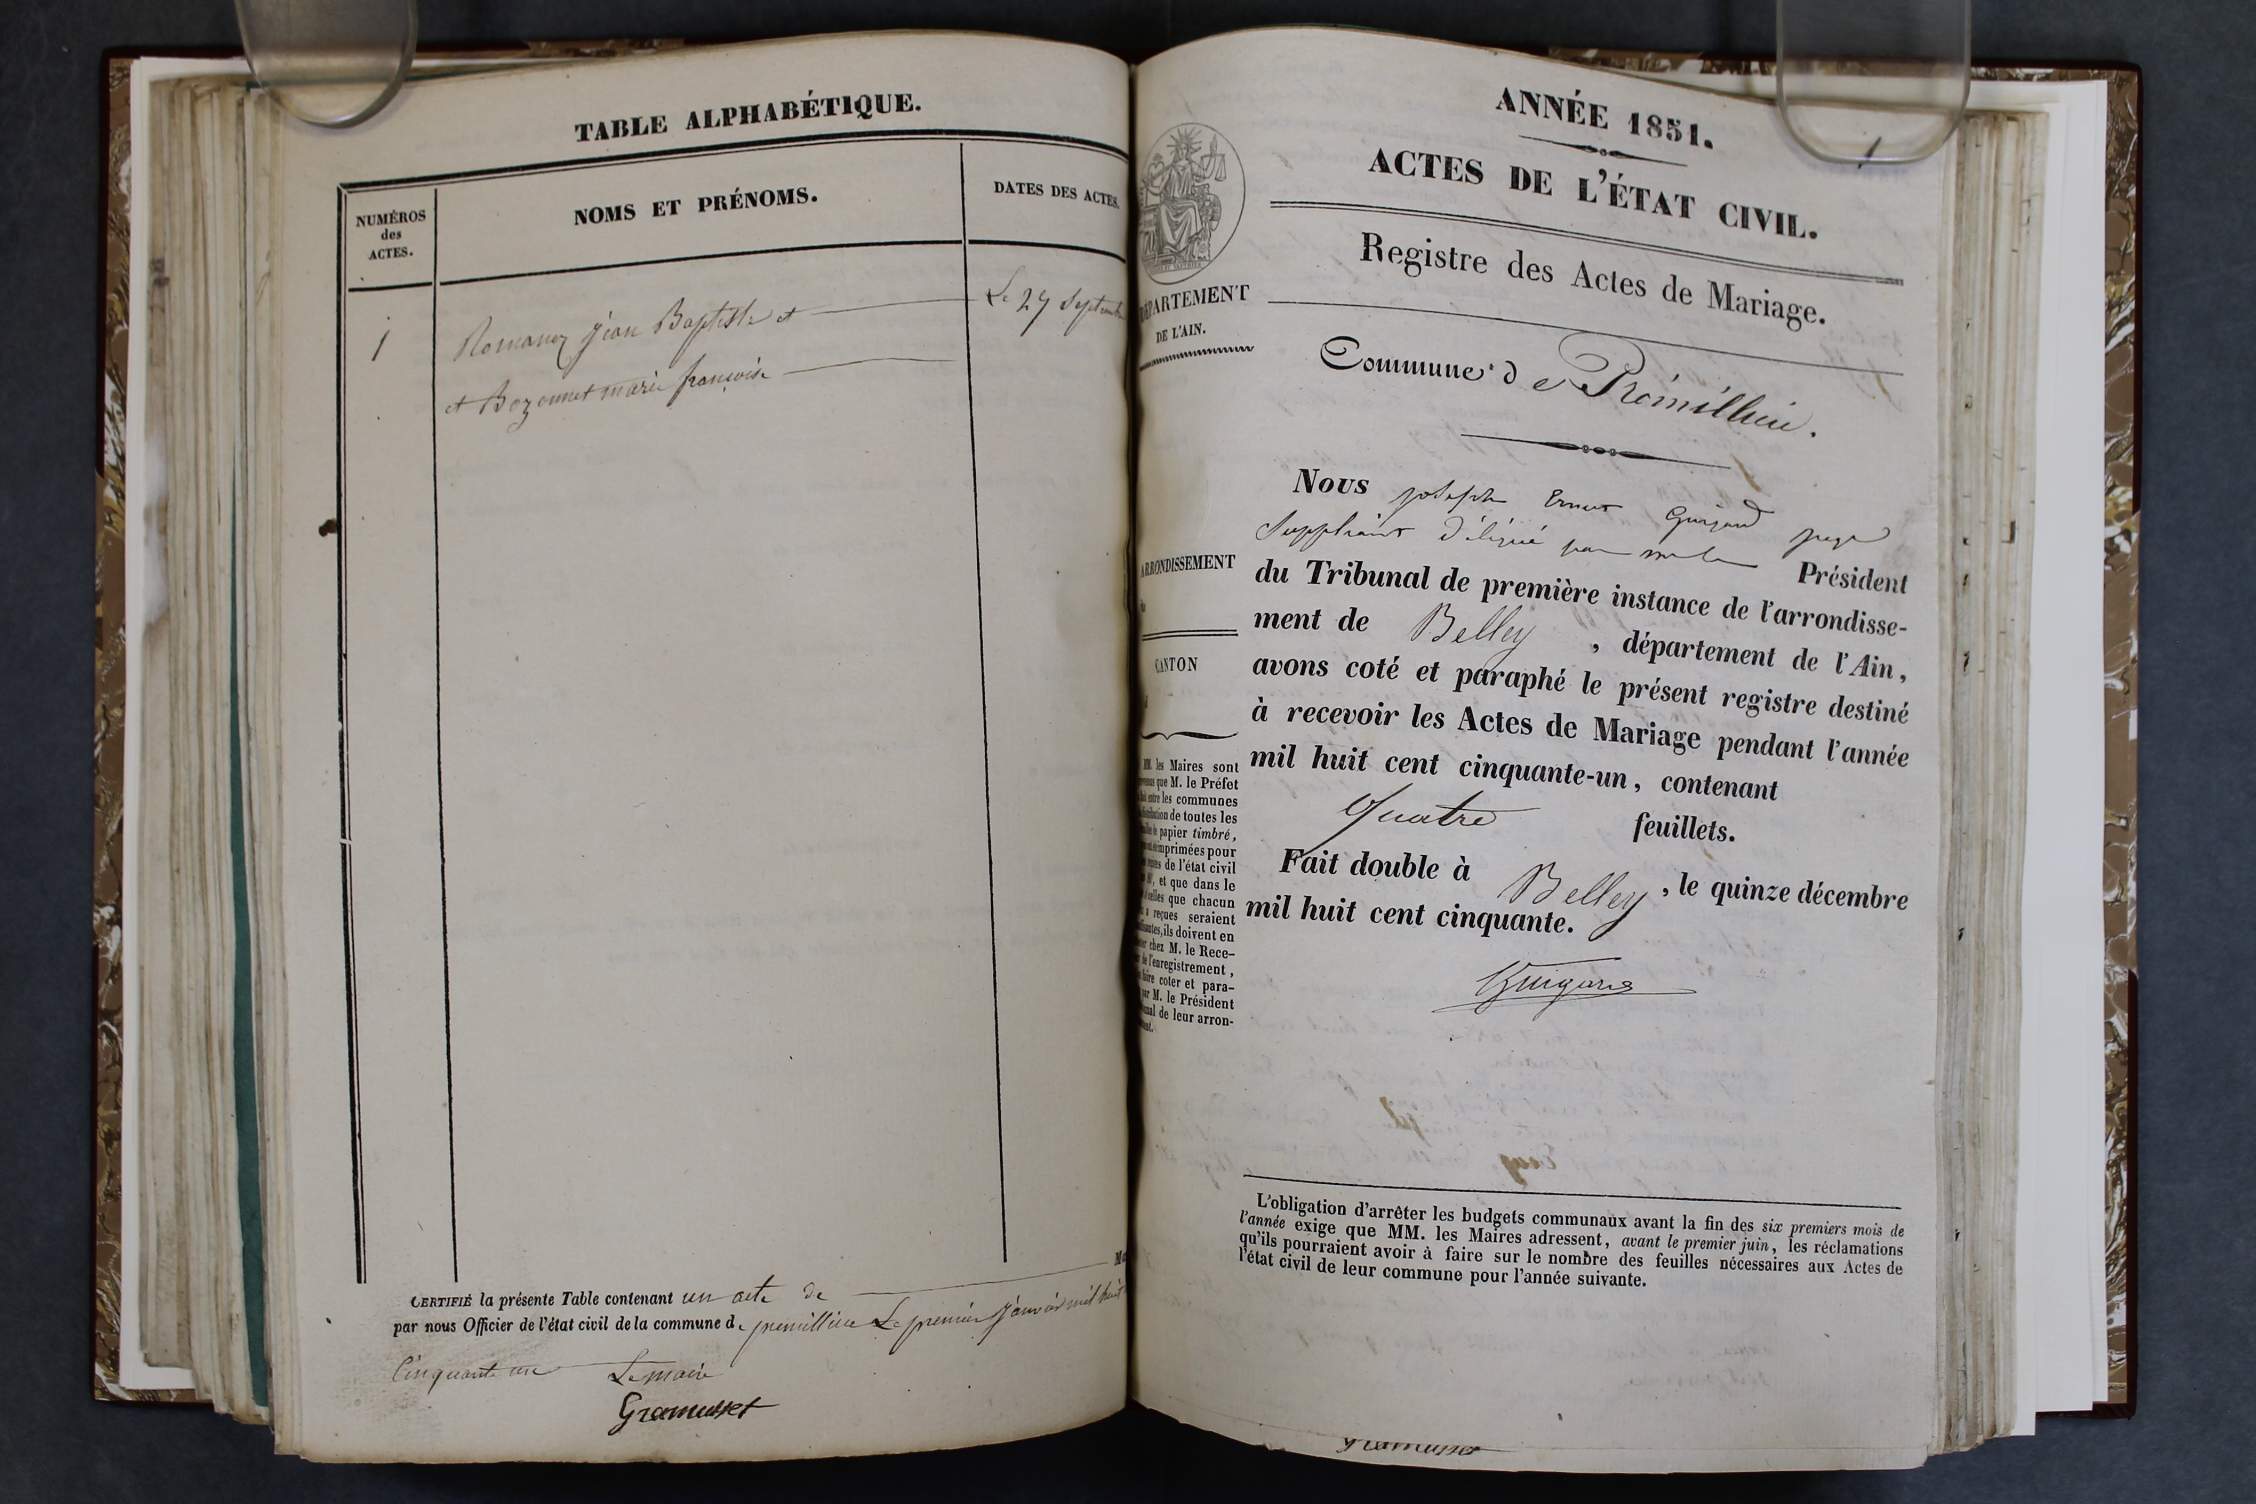 TABLE ALPHABÉTIQUE.
NUMÉROS
des
ACTES.
NOMS ET PRÉNOMS.
DATES DES ACTES.
1
Romanez jean Baptiste et
Le 27 Septembre
et Bozonnet marie françoise
CERTIFIÉ la présente Table contenant un acte de
par nous Officier de l'état civil de la commune de premillieu Le premier janvier mil huit
Cinquante un
Le maire
Gramusset
1
ANNÉE 1851.
ACTES DE L'ÉTAT CIVIL.
Registre des Actes de Mariage.
DÉPARTEMENT
DE L'AIN.
Commune de Prémillieu.
Nous joseph Ernest Guigard juge
Suppléant délégué par
Président
ARRONDISSEMENT
du Tribunal de première instance de l'arrondisse-
ment de Belley, département de l'Ain,
CANTON
avons coté et paraphé le présent registre destiné
à recevoir les Actes de Mariage pendant l'année
mil huit cent cinquante-un, contenant
Quatre feuillets.
Fait double à Belley, le quinze décembre
mil huit cent cinquante.
Guigard
MM. les Maires sont
que M. le Préfet
entre les communes
de toutes les
papier timbré,
imprimées pour
de l'état civil
et que dans le
celles que chacun
a reçues seraient
ils doivent en
chez M. le Rece-
de l'enregistrement,
faire coter et para-
par M. le Président
de leur arron-
L'obligation d'arrêter les budgets communaux avant la fin des six premiers mois de
l'année exige que MM. les Maires adressent, avant le premier juin, les réclamations
qu'ils pourraient avoir à faire sur le nombre des feuilles nécessaires aux Actes de
l'état civil de leur commune pour l'année suivante.
Gramusset